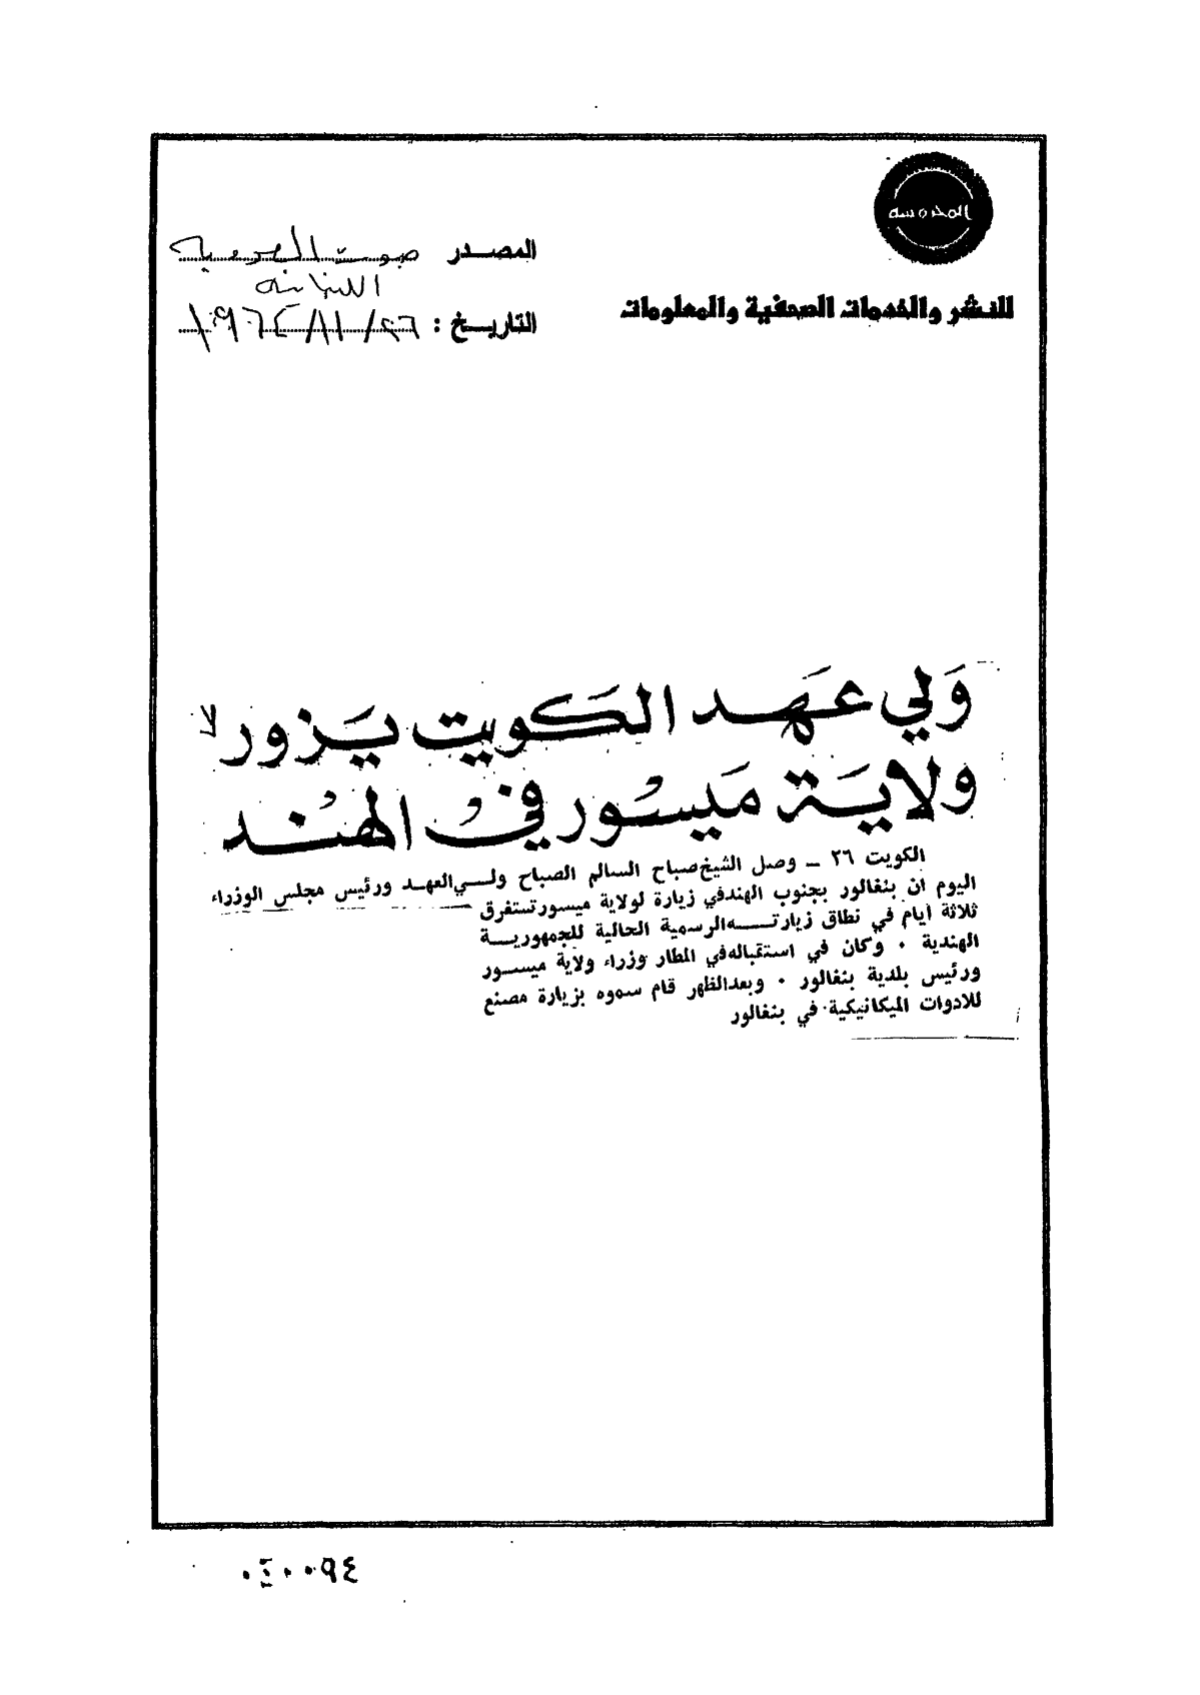 المحروسه
للنشر والخدمات الصحفية والمعلومات
المصدر صوت العروبه
اللبنانيه
التاريخ : ٢٦/١١/١٩٦٤
وَلي عَهَد الكَويت يَزور
ولايَة مَيسْور في الهنْد
الكويت ٢٦ ــ وصل الشيخ صباح السالم الصباح ولــي العهد ورئيس مجلس الوزراء
اليوم ان بنغالور بجنوب الهند في زيارة لولاية ميسور تستغرق
ثلاثة أيام في نطاق زيارتــه الرسمية الحالية للجمهوريــة
الهندية ٠ وكان في استقباله في المطار وزراء ولاية ميســور
ورئيس بلدية بنغالور ٠ وبعد الظهر قام سموه بزيارة مصنع
للادوات الميكانيكية في بنغالور